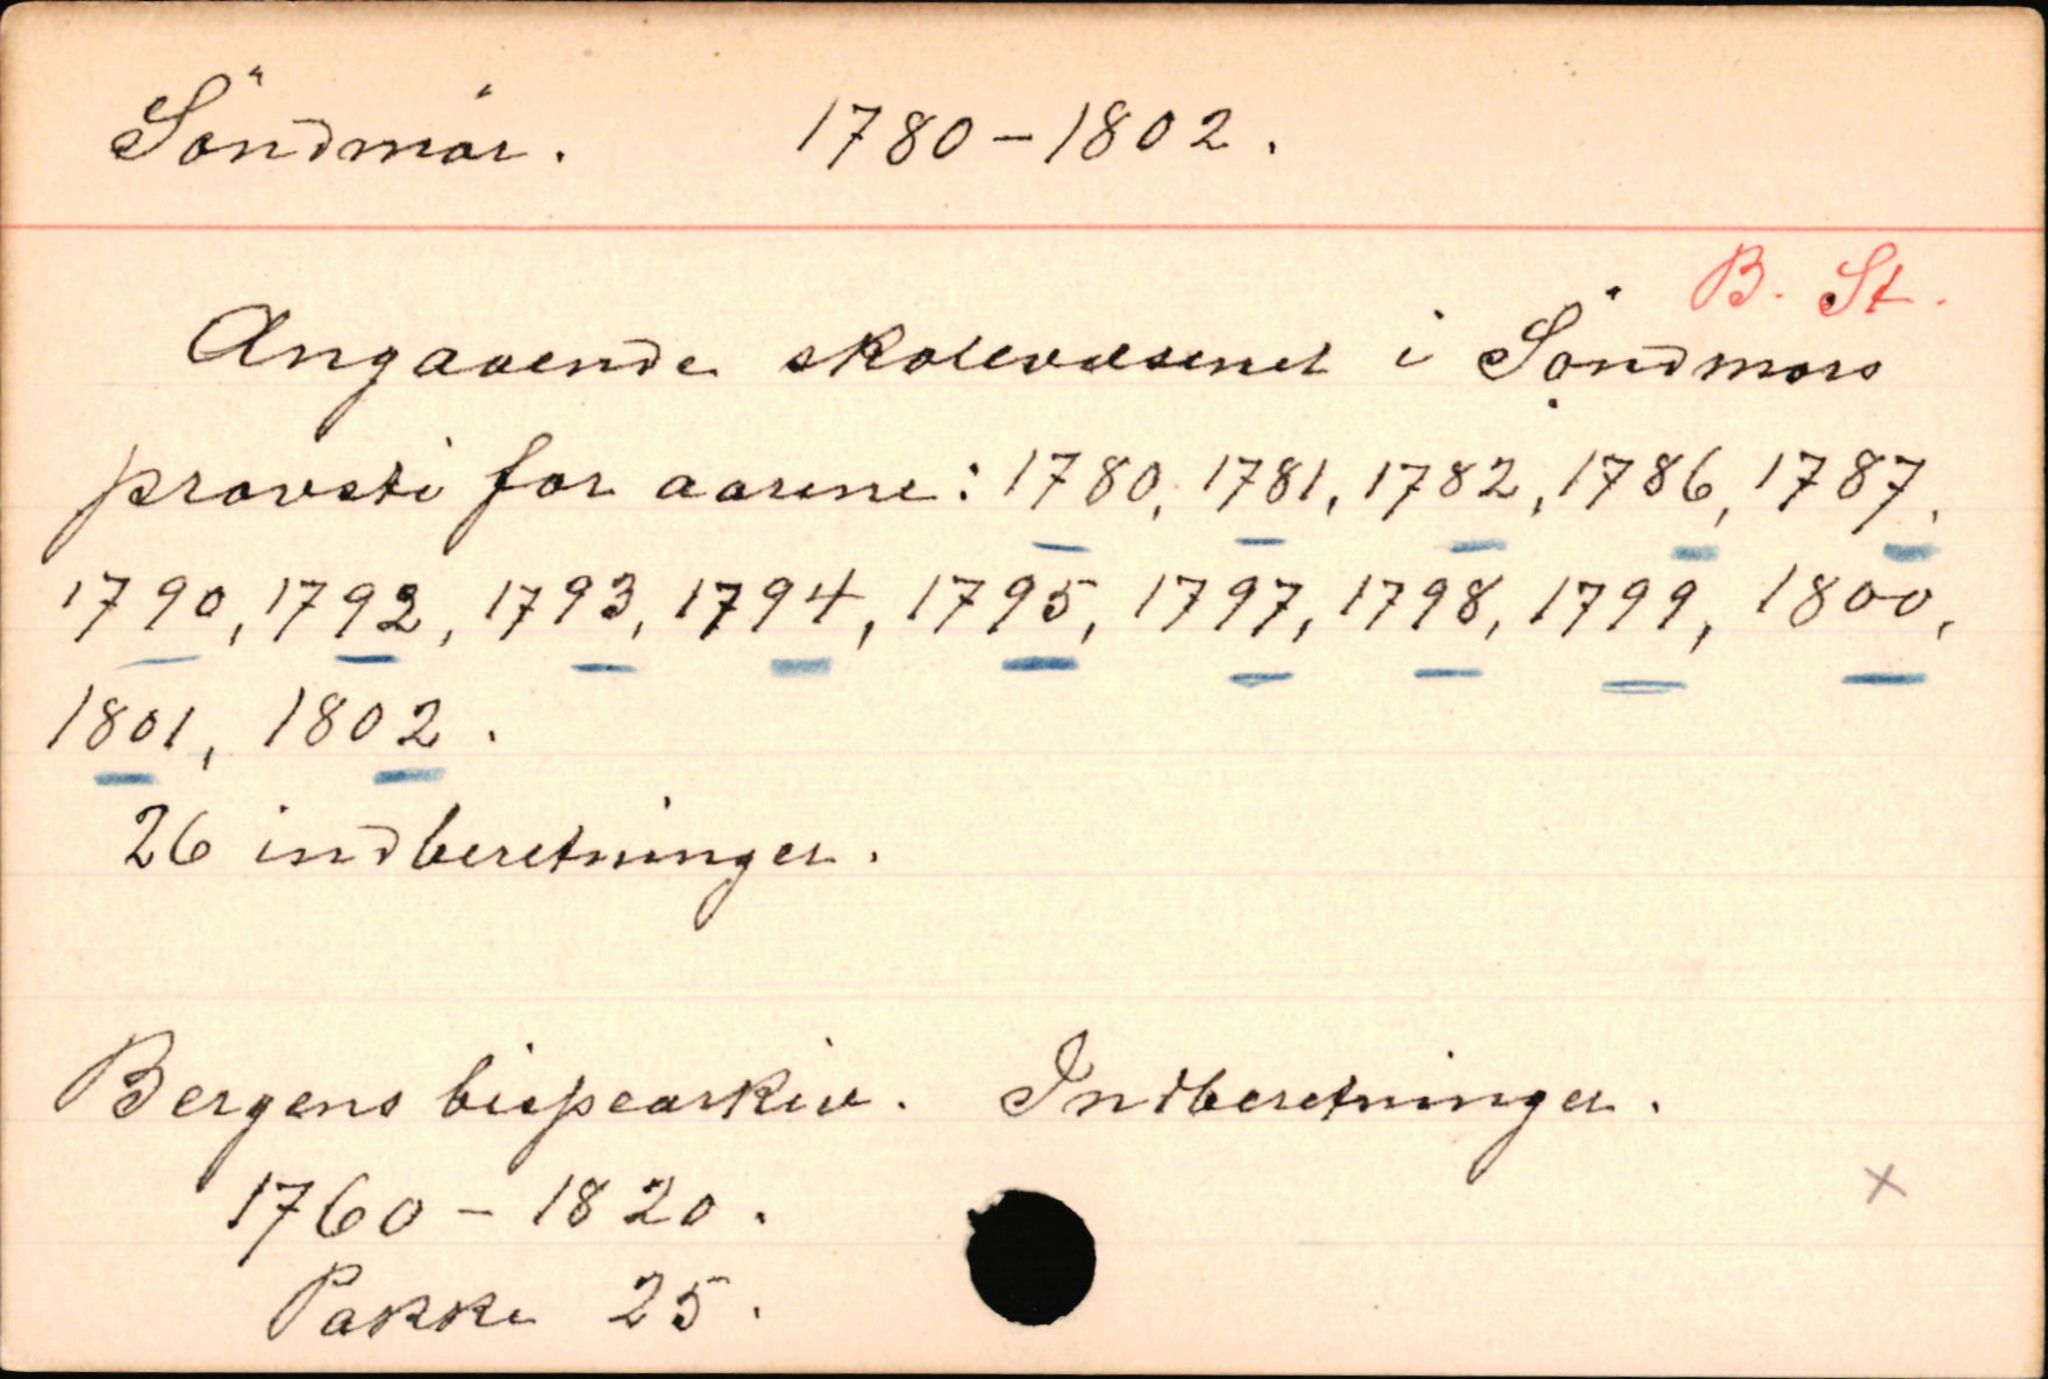 Söndmör. 1780-1802.
B. St.
Angaaende skolevæsenet i Söndmörs
provsti for aarene: 1780, 1781, 1782, 1786, 1787,
1790, 1792, 1793, 1794, 1795, 1797, 1798, 1799, 1800,
1801, 1802.
26 indberetninger.
Bergens bispearkiv. Indberetninger.
1760-1820.
x
Pakke 25.